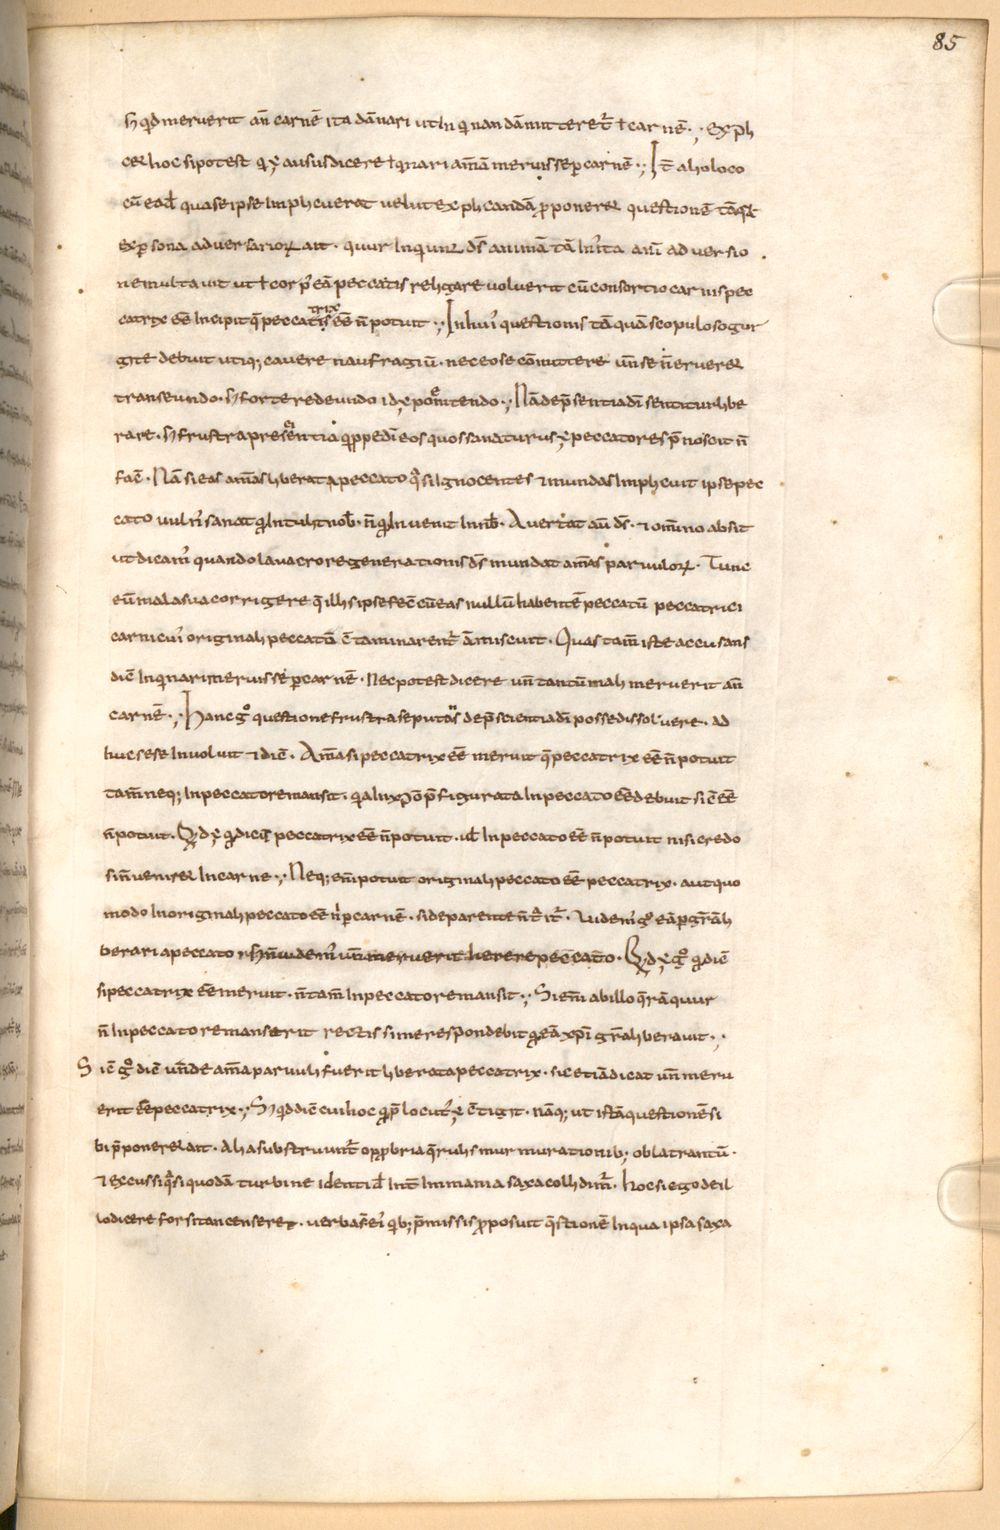 85
ẜ qđ meruerit añ carnē ita dānari ut inquinandā mitteret̄ i carnē. ; Expli
cet hoc si potest q̇ ; ausus dicere inquinari animā meruisse p carnē. ; It̄ alio loco
cū eađ quas ipse implicuerat uelut explicandā pponeret questionē tāqā
ex psona aduersarioꝝ ait. quur inquiunt ds̄ animā tā iniusta animaduersio
ne multauit ut i corp' eā peccatis religare voluerit cū consortio carnis pec
catrix eē̄ incipit q̄ peccatrix eē̄ n̄ potuit. ; In hui' questionis tāquā scopuloso gur
gite debuit utiq; cauere naufragiū. nec eo se cōmittere uñ se n̄ erueret
transeundo. ẜ forte redeundo id ; penitendo. ; Nā de p̄sentia dī sentitur libe
rare. ẜ frustra presentia q̇ppe dī eos quos sanaturus ; peccatores p̄noscit n̄
facē. Nā si eas animas liberat a peccato q̇s ignocentes & mundas implicuit ipse pec
cato uuln' sanat q̇ intulit nob̄. n̄ q̇ inuenit in nob̄. Auertat aū ds̄. & omnino absit
ut dicam' quando lauacro regenerationis ds̄ mundat animas paruuloꝝ. Tunc
eū mala sua corrigere q̄ illis ipse fec̄ cū eas nullū habentē peccatū peccatrici
carni cui' originali peccato c̄taminarent̄ ammiscuit. Quas tam̄ iste accusans
dic̄ inquinari meruisse p carnē. nec potest dicere uñ tantū mali meruerit añ
carnē. ; Hanc g̊ questionē frustra se putās de p̄scientia dī posse dissoluere. ad
huc sese inuoluit & dic̄. Anima si peccatrix eē̄ meruit q̄ peccatrix eē̄ n̄ potuit
tam̄ neq; in peccato remansit. q̇a in xp̄o p̄figurata in peccato eē̄ debuit sic eē̄
n̄ potuit. Qd ; q̇ dicis peccatrix eē̄ n̄ potuit. uł in peccato eē̄ n̄ potuit nisi credo
si n̄ ueniret in carnē. ; Neq; enī potuit originali peccato eē̄ peccatrix. aut quo
modo in originali peccato eē̄ n' p carnē. si de parente n̄ t̄rit̄. Uidem' g̊ eā p gr̄ā li
berari a peccato ẜ n̄ uidem' uñ meruerit herere peccato. Qd ; g̊ q̇ dic̄
si peccatrix eē̄ meruit. n̄ tam̄ in peccato remansit. ; Si enī ab illo q̄rā quur
n̄ in peccato remanserit rectissime respondebit q̇ eā xp̄i gr̄ā liberauit. ;
Sic̄ g̊ dic̄ unde anima paruuli fuerit liberata peccatrix. sic etiā dicat uñ meru
erit eē̄ peccatrix. ; ẜ qd dic̄ cui hoc q̇p̄ locut' ; c̄tigit. nāq; ut istā questionē si
bi p̄poneret ait. Alia substruunt̄ opprobria q̄rulis murmurationib; oblatrantū.
& excussi q̇si quodā turbine identiđ int̄ immania saxa collidim̄. hoc si ego de il
lo dicere forsitan censeret. uerba s̄ ei' q̇b; p̄missis pposuit q̄stionē in qua ipsa saxa